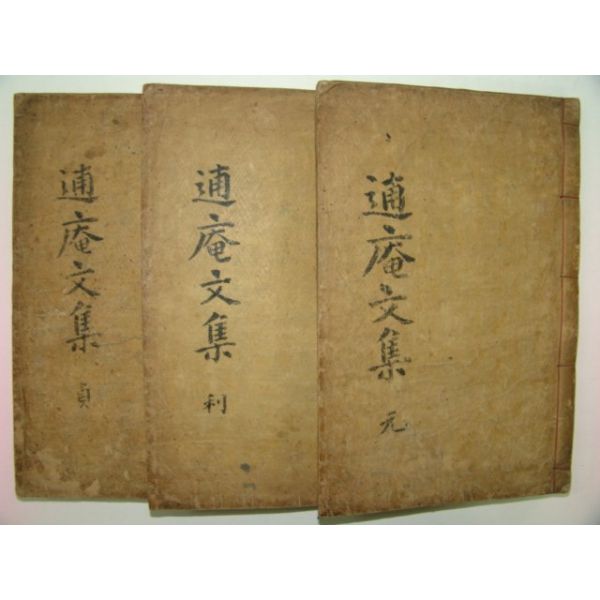 適庵文集
元
適庵文集
利
適庵文集
貞